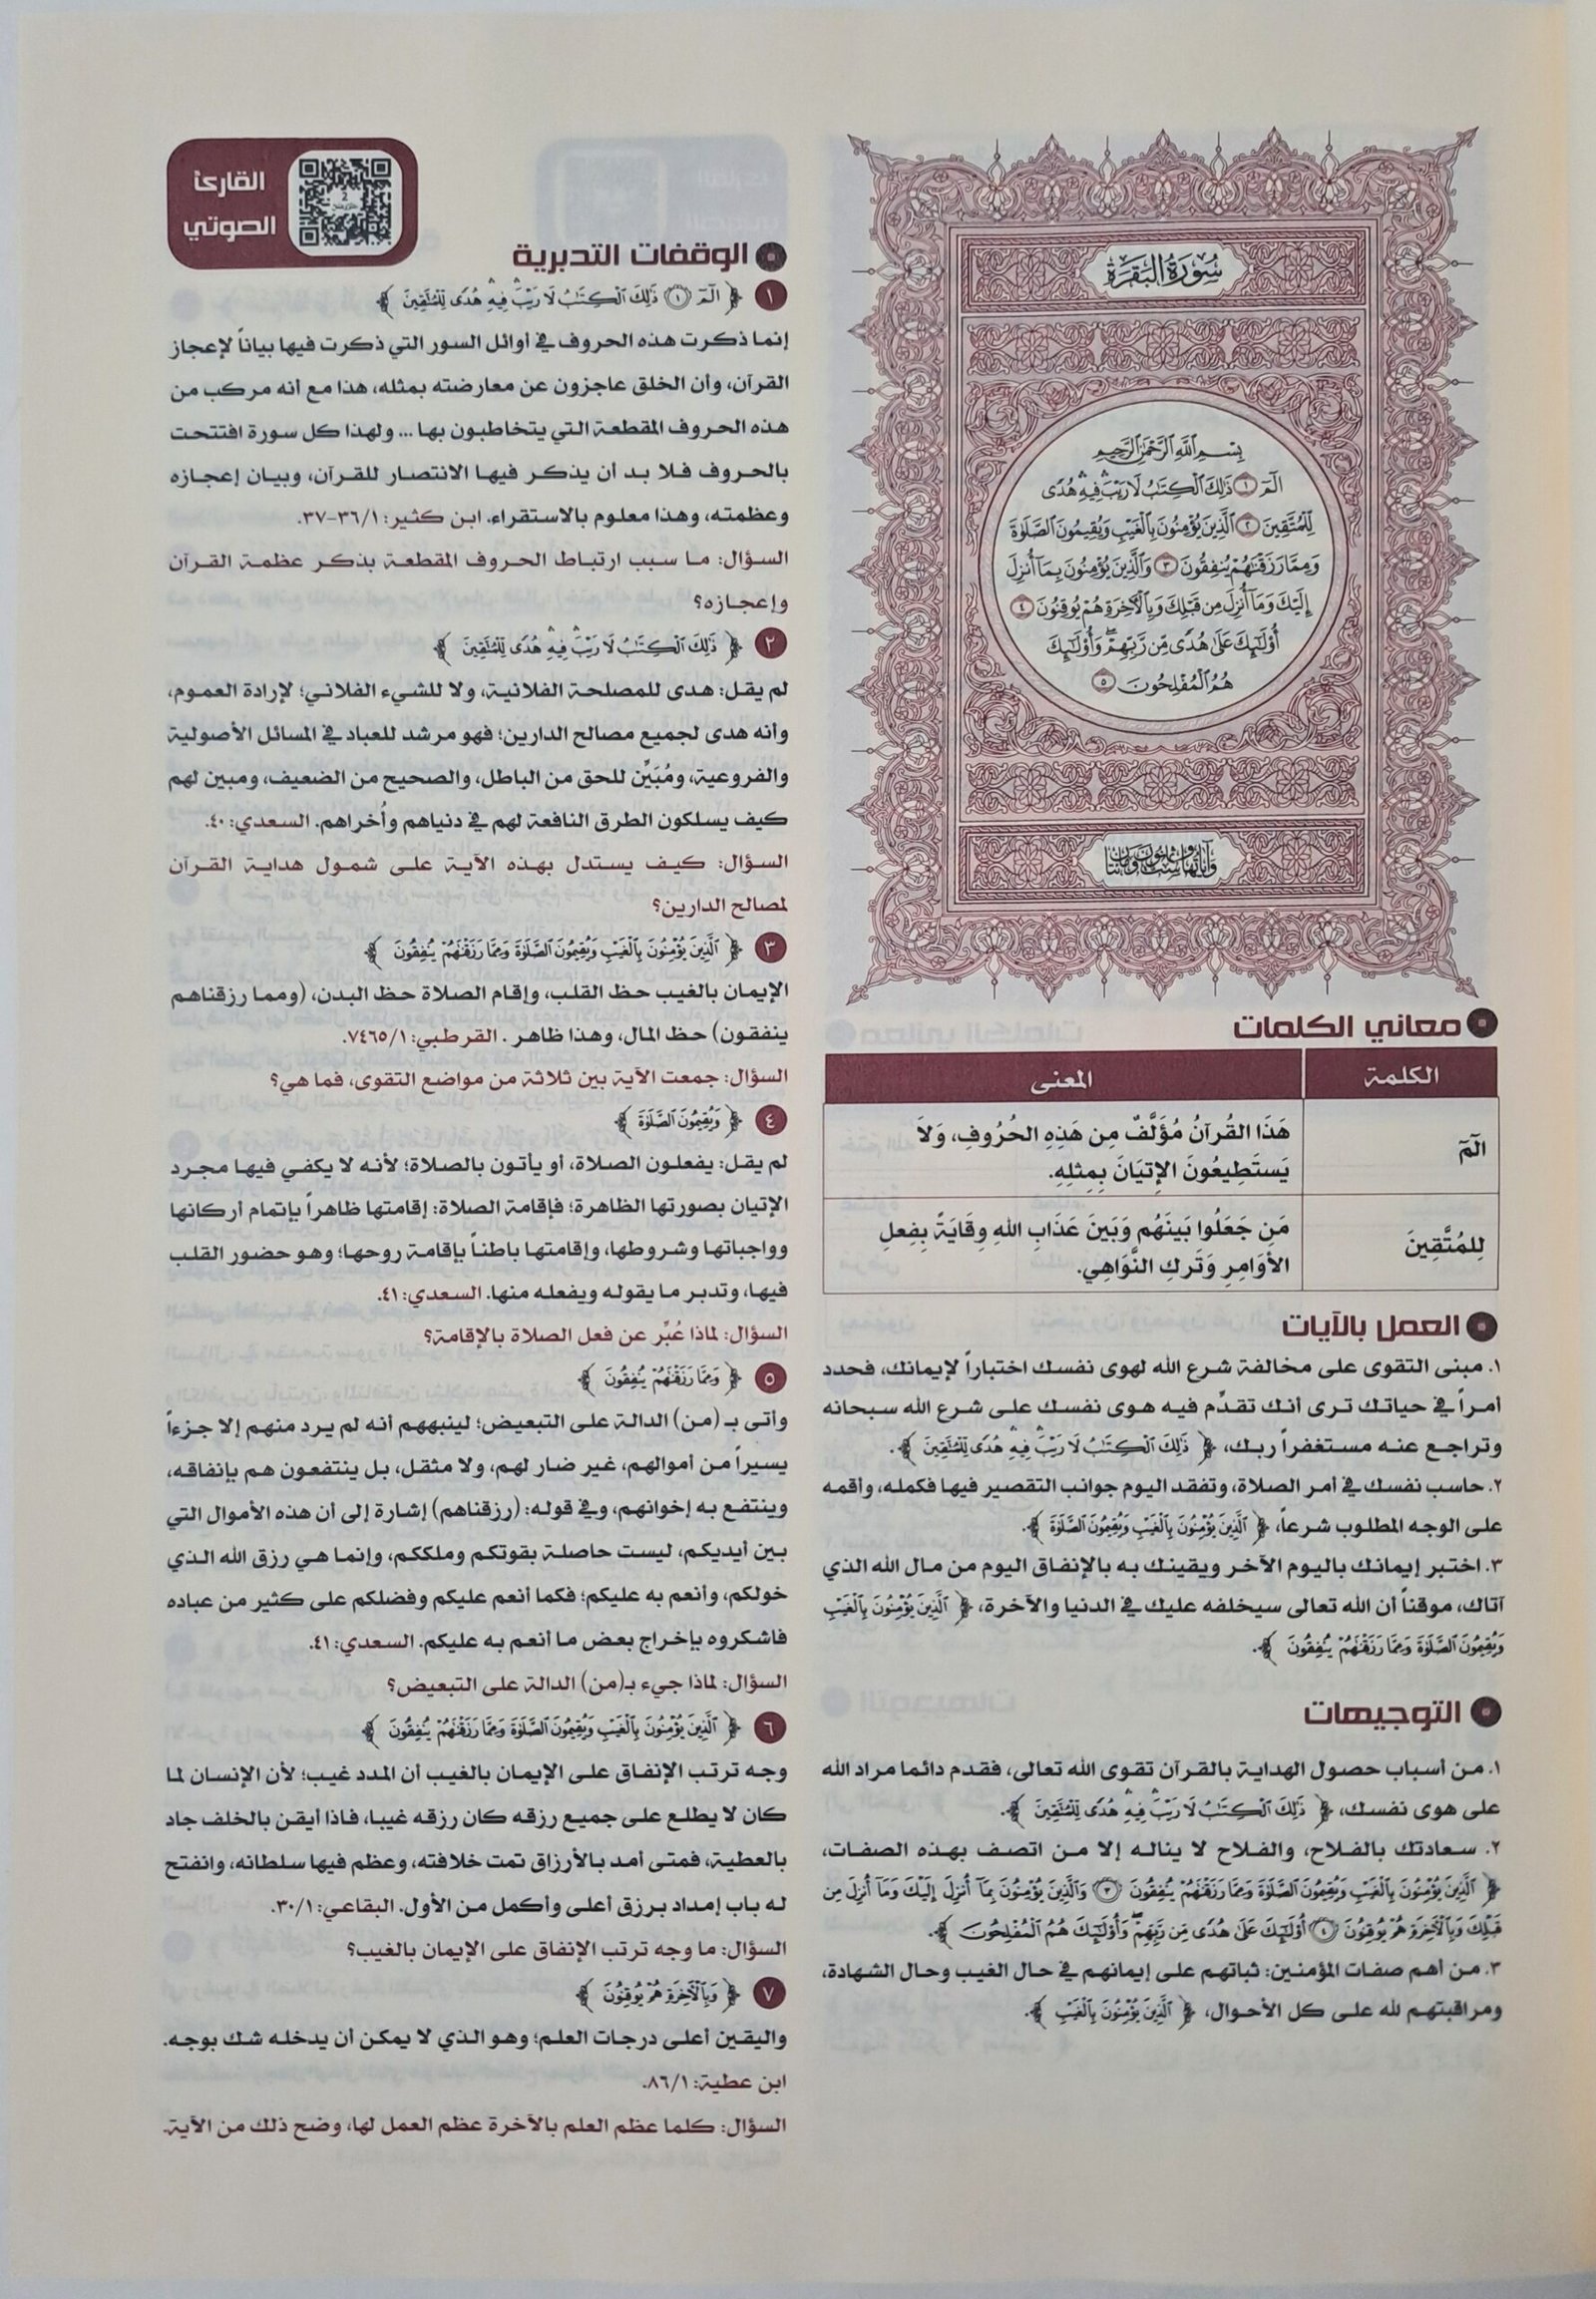 سُورَةُ البَقَرَةِ
بِسْمِ اللَّهِ الرَّحْمَٰنِ الرَّحِيمِ
الٓمٓ ١ ذَٰلِكَ ٱلْكِتَٰبُ لَا رَيْبَ ۛ فِيهِ ۛ هُدًى
لِّلْمُتَّقِينَ ٢ ٱلَّذِينَ يُؤْمِنُونَ بِٱلْغَيْبِ وَيُقِيمُونَ ٱلصَّلَوٰةَ
وَمِمَّا رَزَقْنَٰهُمْ يُنفِقُونَ ٣ وَٱلَّذِينَ يُؤْمِنُونَ بِمَآ أُنزِلَ
إِلَيْكَ وَمَآ أُنزِلَ مِن قَبْلِكَ وَبِٱلْءَاخِرَةِ هُمْ يُوقِنُونَ ٤
أُو۟لَٰٓئِكَ عَلَىٰ هُدًى مِّن رَّبِّهِمْ ۖ وَأُو۟لَٰٓئِكَ
هُمُ ٱلْمُفْلِحُونَ ٥
معاني الكلمات
الكلمة المعنى
الٓمٓ هَذَا القُرآنُ مُؤَلَّفٌ مِن هَذِهِ الحُرُوفِ، وَلاَ
يَستَطِيعُونَ الإِتيَانَ بِمِثلِهِ.
لِلمُتَّقِينَ مَن جَعَلُوا بَينَهُم وَبَينَ عَذَابِ اللهِ وِقَايَةً بِفِعلِ
الأَوَامِرِ وَتَركِ النَّوَاهِي.
العمل بالآيات
١. مبنى التقوى على مخالفة شرع الله لهوى نفسك اختباراً لإيمانك، فحدد
أمراً في حياتك ترى أنك تقدِّم فيه هوى نفسك على شرع الله سبحانه
وتراجع عنه مستغفراً ربك، ﴿ ذَٰلِكَ ٱلْكِتَٰبُ لَا رَيْبَ ۛ فِيهِ ۛ هُدًى لِّلْمُتَّقِينَ ﴾.
٢. حاسب نفسك في أمر الصلاة، وتفقد اليوم جوانب التقصير فيها فكمله، وأقمه
على الوجه المطلوب شرعاً، ﴿ ٱلَّذِينَ يُؤْمِنُونَ بِٱلْغَيْبِ وَيُقِيمُونَ ٱلصَّلَوٰةَ ﴾.
٣. اختبر إيمانك باليوم الآخر ويقينك به بالإنفاق اليوم من مال الله الذي
آتاك، موقناً أن الله تعالى سيخلفه عليك في الدنيا والآخرة، ﴿ ٱلَّذِينَ يُؤْمِنُونَ بِٱلْغَيْبِ
وَيُقِيمُونَ ٱلصَّلَوٰةَ وَمِمَّا رَزَقْنَٰهُمْ يُنفِقُونَ ﴾.
التوجيهات
١. من أسباب حصول الهداية بالقرآن تقوى الله تعالى، فقدم دائما مراد الله
على هوى نفسك، ﴿ ذَٰلِكَ ٱلْكِتَٰبُ لَا رَيْبَ ۛ فِيهِ ۛ هُدًى لِّلْمُتَّقِينَ ﴾.
٢. سعادتك بالفلاح، والفلاح لا يناله إلا من اتصف بهذه الصفات،
﴿ ٱلَّذِينَ يُؤْمِنُونَ بِٱلْغَيْبِ وَيُقِيمُونَ ٱلصَّلَوٰةَ وَمِمَّا رَزَقْنَٰهُمْ يُنفِقُونَ ٣ وَٱلَّذِينَ يُؤْمِنُونَ بِمَآ أُنزِلَ إِلَيْكَ وَمَآ أُنزِلَ مِن
قَبْلِكَ وَبِٱلْءَاخِرَةِ هُمْ يُوقِنُونَ ٤ أُو۟لَٰٓئِكَ عَلَىٰ هُدًى مِّن رَّبِّهِمْ ۖ وَأُو۟لَٰٓئِكَ هُمُ ٱلْمُفْلِحُونَ ﴾.
٣. من أهم صفات المؤمنين: ثباتهم على إيمانهم في حال الغيب وحال الشهادة،
ومراقبتهم لله على كل الأحوال، ﴿ ٱلَّذِينَ يُؤْمِنُونَ بِٱلْغَيْبِ ﴾.
القارئ
الصوتي
الوقفات التدبرية
١ ﴿ الٓمٓ ١ ذَٰلِكَ ٱلْكِتَٰبُ لَا رَيْبَ ۛ فِيهِ ۛ هُدًى لِّلْمُتَّقِينَ ﴾
إنما ذكرت هذه الحروف في أوائل السور التي ذكرت فيها بياناً لإعجاز
القرآن، وأن الخلق عاجزون عن معارضته بمثله، هذا مع أنه مركب من
هذه الحروف المقطعة التي يتخاطبون بها ... ولهذا كل سورة افتتحت
بالحروف فلا بد أن يذكر فيها الانتصار للقرآن، وبيان إعجازه
وعظمته، وهذا معلوم بالاستقراء. ابن كثير: ٣٦/١-٣٧.
السؤال: ما سبب ارتباط الحروف المقطعة بذكر عظمة القرآن
وإعجازه؟
٢ ﴿ ذَٰلِكَ ٱلْكِتَٰبُ لَا رَيْبَ ۛ فِيهِ ۛ هُدًى لِّلْمُتَّقِينَ ﴾
لم يقل: هدى للمصلحة الفلانية، ولا للشيء الفلاني؛ لإرادة العموم،
وأنه هدى لجميع مصالح الدارين؛ فهو مرشد للعباد في المسائل الأصولية
والفروعية، ومُبَيِّن للحق من الباطل، والصحيح من الضعيف، ومبين لهم
كيف يسلكون الطرق النافعة لهم في دنياهم وأُخراهم. السعدي: ٤٠.
السؤال: كيف يستدل بهذه الآية على شمول هداية القرآن
لمصالح الدارين؟
٣ ﴿ ٱلَّذِينَ يُؤْمِنُونَ بِٱلْغَيْبِ وَيُقِيمُونَ ٱلصَّلَوٰةَ وَمِمَّا رَزَقْنَٰهُمْ يُنفِقُونَ ﴾
الإيمان بالغيب حظ القلب، وإقام الصلاة حظ البدن، (ومما رزقناهم
ينفقون) حظ المال، وهذا ظاهر . القرطبي: ٧٤٦٥/١.
السؤال: جمعت الآية بين ثلاثة من مواضع التقوى، فما هي؟
٤ ﴿ وَيُقِيمُونَ ٱلصَّلَوٰةَ ﴾
لم يقل: يفعلون الصلاة، أو يأتون بالصلاة؛ لأنه لا يكفي فيها مجرد
الإتيان بصورتها الظاهرة؛ فإقامة الصلاة: إقامتها ظاهراً بإتمام أركانها
وواجباتها وشروطها، وإقامتها باطناً بإقامة روحها؛ وهو حضور القلب
فيها، وتدبر ما يقوله ويفعله منها. السعدي: ٤١.
السؤال: لماذا عُبِّر عن فعل الصلاة بالإقامة؟
٥ ﴿ وَمِمَّا رَزَقْنَٰهُمْ يُنفِقُونَ ﴾
وأتى بـ (من) الدالة على التبعيض؛ لينبههم أنه لم يرد منهم إلا جزءاً
يسيراً من أموالهم، غير ضار لهم، ولا مثقل، بل ينتفعون هم بإنفاقه،
وينتفع به إخوانهم، وفي قوله: (رزقناهم) إشارة إلى أن هذه الأموال التي
بين أيديكم، ليست حاصلة بقوتكم وملككم، وإنما هي رزق الله الذي
خولكم، وأنعم به عليكم؛ فكما أنعم عليكم وفضلكم على كثير من عباده
فاشكروه بإخراج بعض ما أنعم به عليكم. السعدي: ٤١.
السؤال: لماذا جيء بـ(من) الدالة على التبعيض؟
٦ ﴿ ٱلَّذِينَ يُؤْمِنُونَ بِٱلْغَيْبِ وَيُقِيمُونَ ٱلصَّلَوٰةَ وَمِمَّا رَزَقْنَٰهُمْ يُنفِقُونَ ﴾
وجه ترتب الإنفاق على الإيمان بالغيب أن المدد غيب؛ لأن الإنسان لما
كان لا يطلع على جميع رزقه كان رزقه غيبا، فاذا أيقن بالخلف جاد
بالعطية، فمتى أمد بالأرزاق تمت خلافته، وعظم فيها سلطانه، وانفتح
له باب إمداد برزق أعلى وأكمل من الأول. البقاعي: ٣٠/١.
السؤال: ما وجه ترتب الإنفاق على الإيمان بالغيب؟
٧ ﴿ وَبِٱلْءَاخِرَةِ هُمْ يُوقِنُونَ ﴾
واليقين أعلى درجات العلم؛ وهو الذي لا يمكن أن يدخله شك بوجه.
ابن عطية: ٨٦/١.
السؤال: كلما عظم العلم بالآخرة عظم العمل لها، وضح ذلك من الآية.